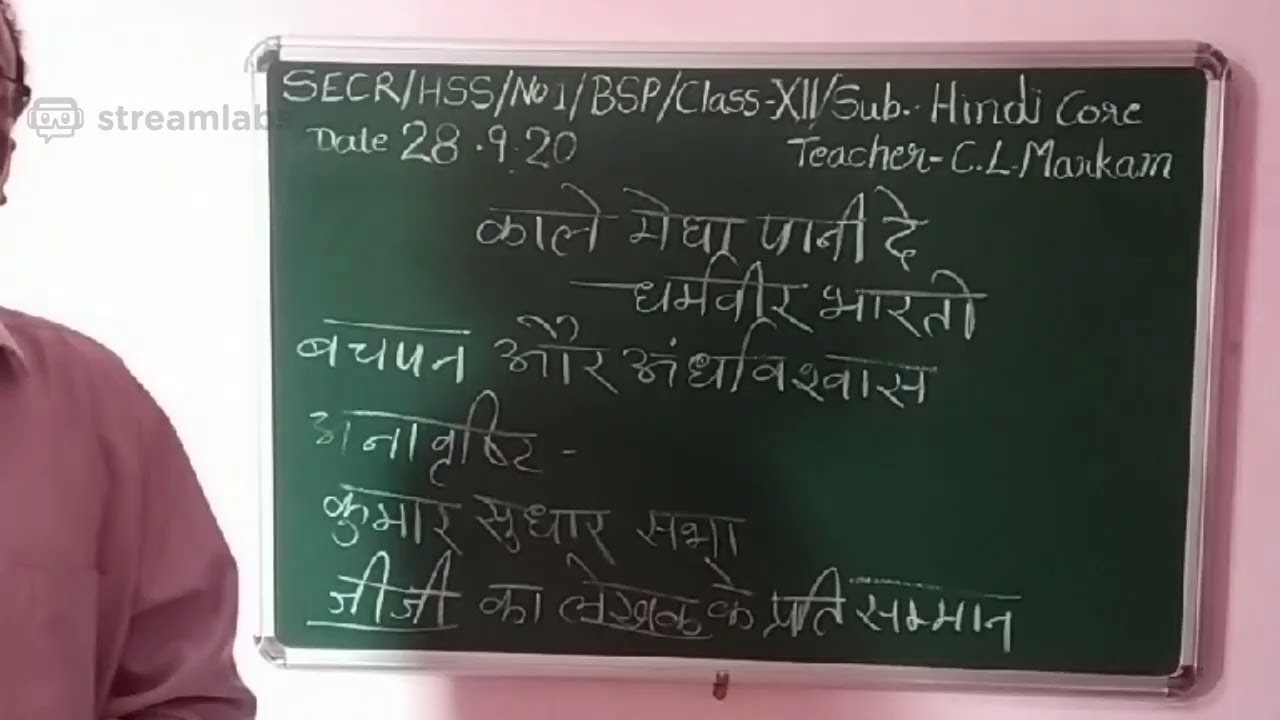 streamlabs
SECR/HSS/No 1/BSP/Class-XII/Sub.- Hindi Core
Date 28.9.20
Teacher- C.L.Markam
काले मेघा पानी दे
—धर्मवीर भारती
बचपन और अंधविश्वास
अनावृष्टि -
कुमार सुधार सभा
जीजी का लेखक के प्रति सम्मान